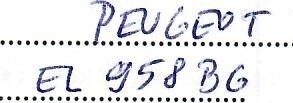 PEUGEOT
EL 958 BG